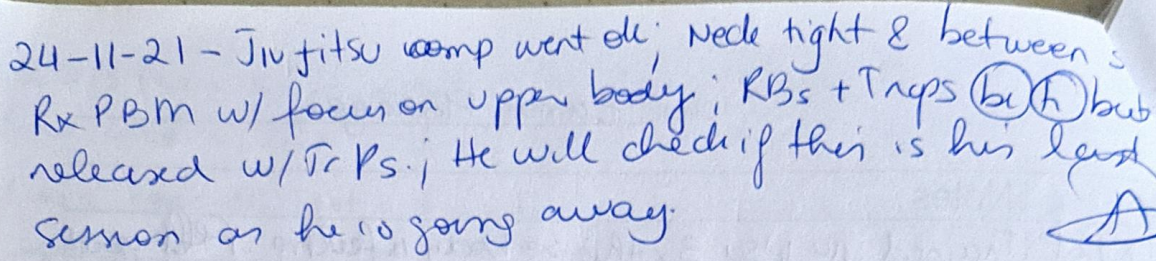 24-11-21 - Jiu jitsu comp went ok; Neck tight & between s
Rx PBM w/ focus on upper body; RBs + Traps bi h but
released w/ TrPs.; He will check if this is his last
session as he is going away.